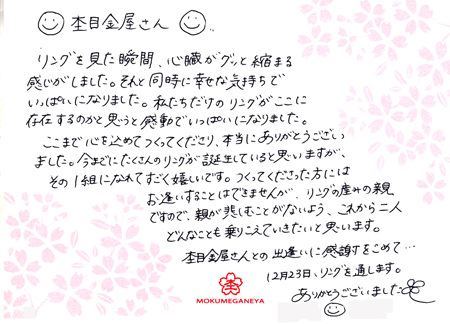 杢目金屋さん
リングを見た瞬間、心臓がグッと縮まる
感じがしました。それと同時に幸せな気持ちで
いっぱいになりました。私たちだけのリングがここに
存在するのかと思うと感動でいっぱいになりました。
ここまで心を込めてつくってくださり、本当にありがとうござい
ました。今までにたくさんのリングが誕生していると思いますが、
その1組になれてすごく嬉しいです。つくってくださった方には
お逢いすることはできませんが、リングの産みの親
ですので、親が悲しむことがないよう、これから二人
どんなことも乗りこえていきたいと思います。
杢目金屋さんとの出逢いに感謝をこめて…
12月23日、リングを通します。
ありがとうございました
MOKUMEGANEYA